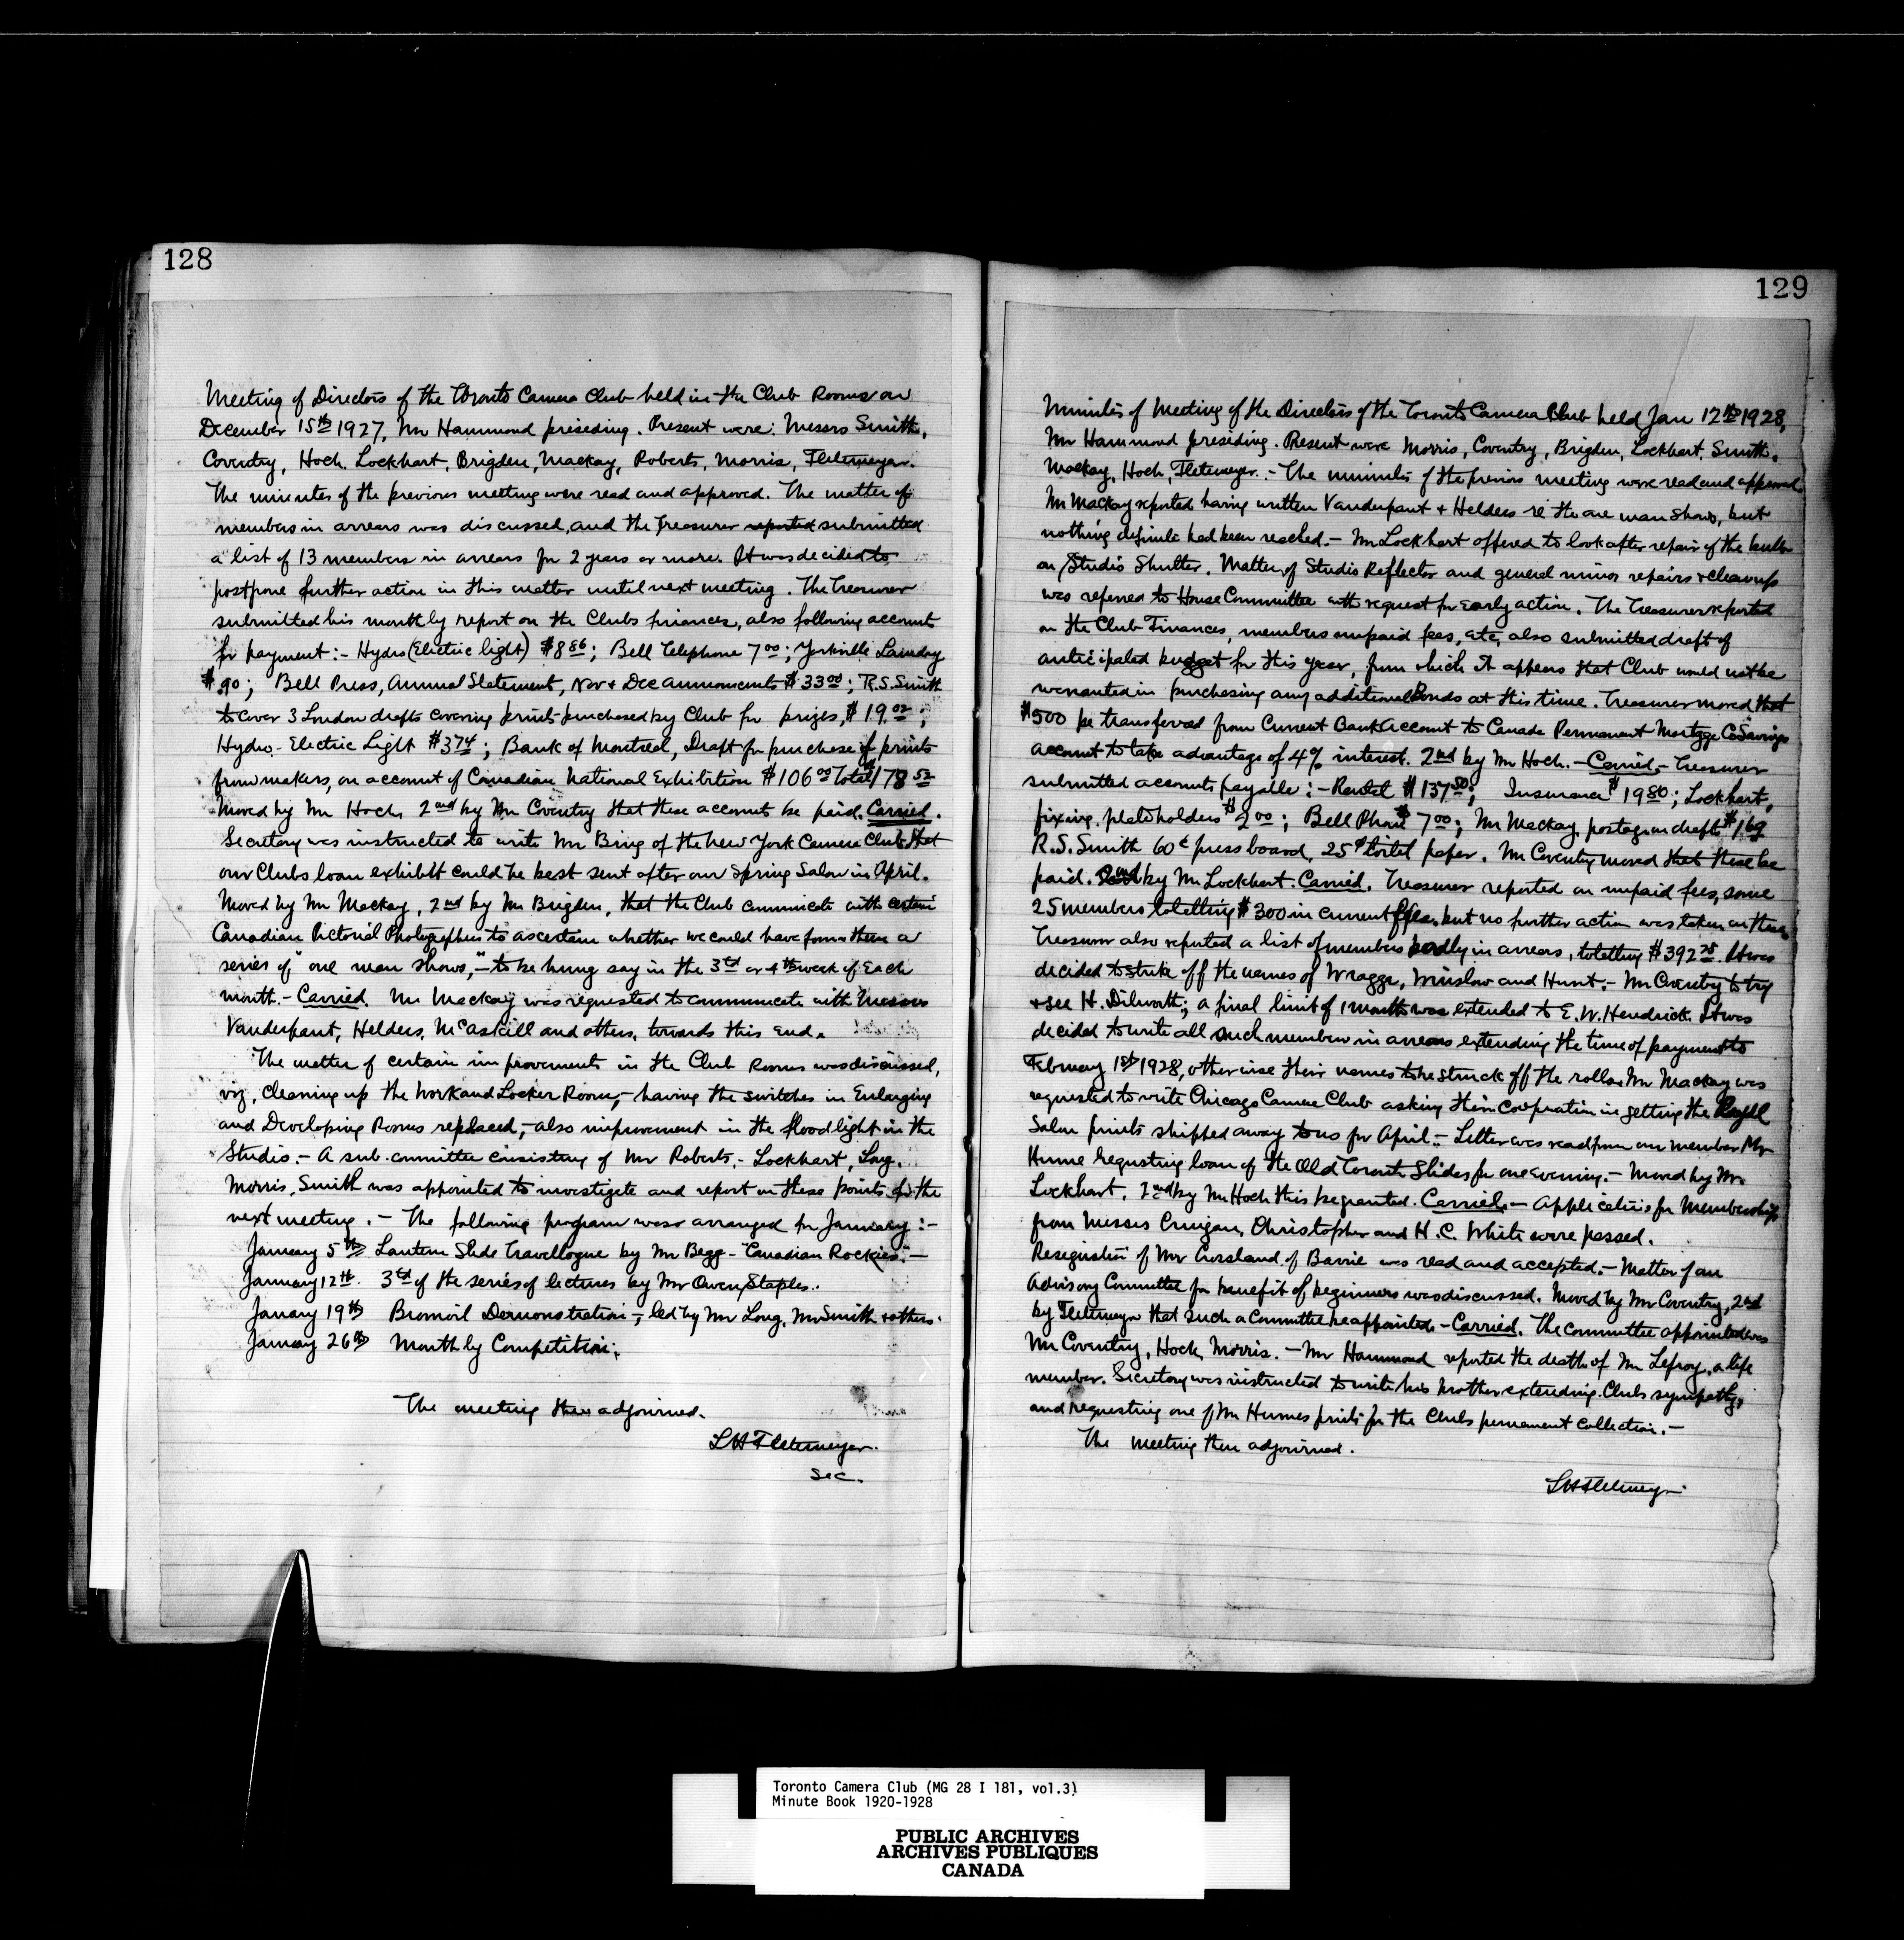 128
Meeting of Directors of the Toronto Camera Club held in the Club Rooms on
December 15th 1927, Mr Hammond presiding. Present were: Messrs Smith,
Coventry, Hoch, Lockhart, Brigden, Mackay, Roberts, Morris, Fleteмeyer.
The minutes of the previous meeting were read and approved. The matter of
members in arrears was discussed, and the Treasurer reported submitted
a list of 13 members in arrears for 2 years or more. It was decided to
postpone further action in this matter until next meeting. The Treasurer
submitted his monthly report on the Clubs finances, also following accounts
for payment:- Hydro (Electric light) $8 86; Bell Telephone 7 00; Yorkville Laundry
$.90; Bell Press, Annual Statement, Nov + Dec announcements $33 00; R.S. Smith
to cover 3 London drafts covering prints purchased by Club for prizes, $19.02;
Hydro-Electric Light $3 74; Bank of Montreal, Draft for purchase of prints
from makers, on account of Canadian National Exhibition $106 00 Total $178 52
Moved by Mr Hoch, 2nd by Mr Coventry that these accounts be paid. Carried.
Secretary was instructed to write Mr Bing of the New York Camera Club that
our Clubs loan exhibit could be best sent after our Spring Salon in April.
Moved by Mr Mackay, 2nd by Mr Brigden, that the Club communicate with certain
Canadian Pictorial Photographers to ascertain whether we could have from them a
series of "one man shows," - to be hung say in the 3rd or 4th week of each
month. - Carried. Mr Mackay was requested to communicate with Messrs
Vanderpant, Helders, McAskill and others, towards this end.
The matter of certain improvements in the Club Rooms was discussed,
viz, cleaning up the Work and Locker Room, - having the switches in Enlarging
and Developing Rooms replaced, - also improvement in the floodlight in the
Studio. - A sub-committee consisting of Mr Roberts, - Lockhart, Long,
Morris, Smith was appointed to investigate and report on these points for the
next meeting. - The following program was arranged for January:-
January 5th Lantern Slide Travellogue by Mr Begg - "Canadian Rockies." -
January 12th. 3rd of the series of lectures by Mr Owen Staples.
January 19th Bromoil Demonstration, - led by Mr Long, Mr Smith + others.
January 26th Monthly Competition.
The meeting then adjourned.
L H Fletemeyer.
Sec.
129
Minutes of Meeting of the Directors of the Toronto Camera Club held Jan 12th 1928,
Mr Hammond presiding. Present were Morris, Coventry, Brigden, Lockhart, Smith,
Mackay, Hoch, Fletemeyer. - The minutes of the previous meeting were read and approved.
Mr Mackay reported having written Vanderpant + Helders re the one man shows, but
nothing definite had been reached. - Mr Lockhart offered to look after repair of the bulb
on Studio Shutter. Matter of Studio Reflector and general minor repairs + cleanup
was referred to House Committee with request for early action. The Treasurer reported
on the Club Finances, members unpaid fees, etc, also submitted draft of
anticipated budget for this year, from which it appears that Club would not be
warranted in purchasing any additional Bonds at this time. Treasurer moved that
$500 be transferred from Current Bank Account to Canada Permanent Mortgage Co Savings
account to take advantage of 4% interest. 2nd by Mr Hoch. - Carried. - Treasurer
submitted accounts payable:- Rental $137 50; Insurance $19 80; Lockhart,
fixing plateholders $2 00; Bell Phone $7 00; Mr Mackay, postage on drafts $1.69
R.S. Smith 60¢ press board, 25¢ toilet paper. Mr Coventry moved that these be
paid. 2nd by Mr Lockhart. Carried. Treasurer reported on unpaid fees, some
25 members totalling $300 in current fees, but no further action was taken on these.
Treasurer also reported a list of members badly in arrears, totalling $392 75. It was
decided to strike off the names of Wragge, Winslow and Hunt. - Mr Coventry to try
+ see H. Dilworth; a final limit of 1 month was extended to E.W. Hendrick. It was
decided to write all such members in arrears extending the time of payment to
February 1st 1928, otherwise their names to be struck off the rolls. Mr Mackay was
requested to write Chicago Camera Club asking their cooperation in getting the
Salon prints shipped away to us for April. - Letter was read from our member Mr
Hume requesting loan of the Old Toronto Slides for one evening. - Moved by Mr
Lockhart, 2nd by Mr Hoch this be granted. Carried. - Applications for Membership
from Messrs Crusgan, Christopher and H.C. White were passed.
Resignation of Mr Crossland of Barrie was read and accepted. - Matter of an
Advisory Committee for benefit of beginners was discussed. Moved by Mr Coventry, 2nd
by Fletemeyer that such a Committee be appointed. - Carried. The committee appointed was
Mr Coventry, Hoch, Morris. - Mr Hammond reported the death of Mr Lefroy, a life
member. Secretary was instructed to write his brother extending Clubs sympathy,
and requesting one of Mr Humes prints for the Clubs permanent collection. -
The meeting then adjourned.
L H Fletemeyer
Toronto Camera Club (MG 28 I 181, vol.3)
Minute Book 1920-1928
PUBLIC ARCHIVES
ARCHIVES PUBLIQUES
CANADA